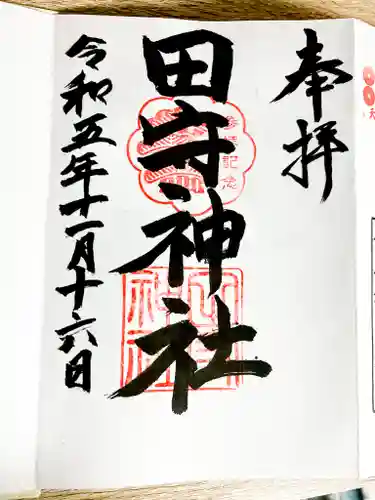 奉拝
田守神社
令和五年十一月十六日
参拝記念